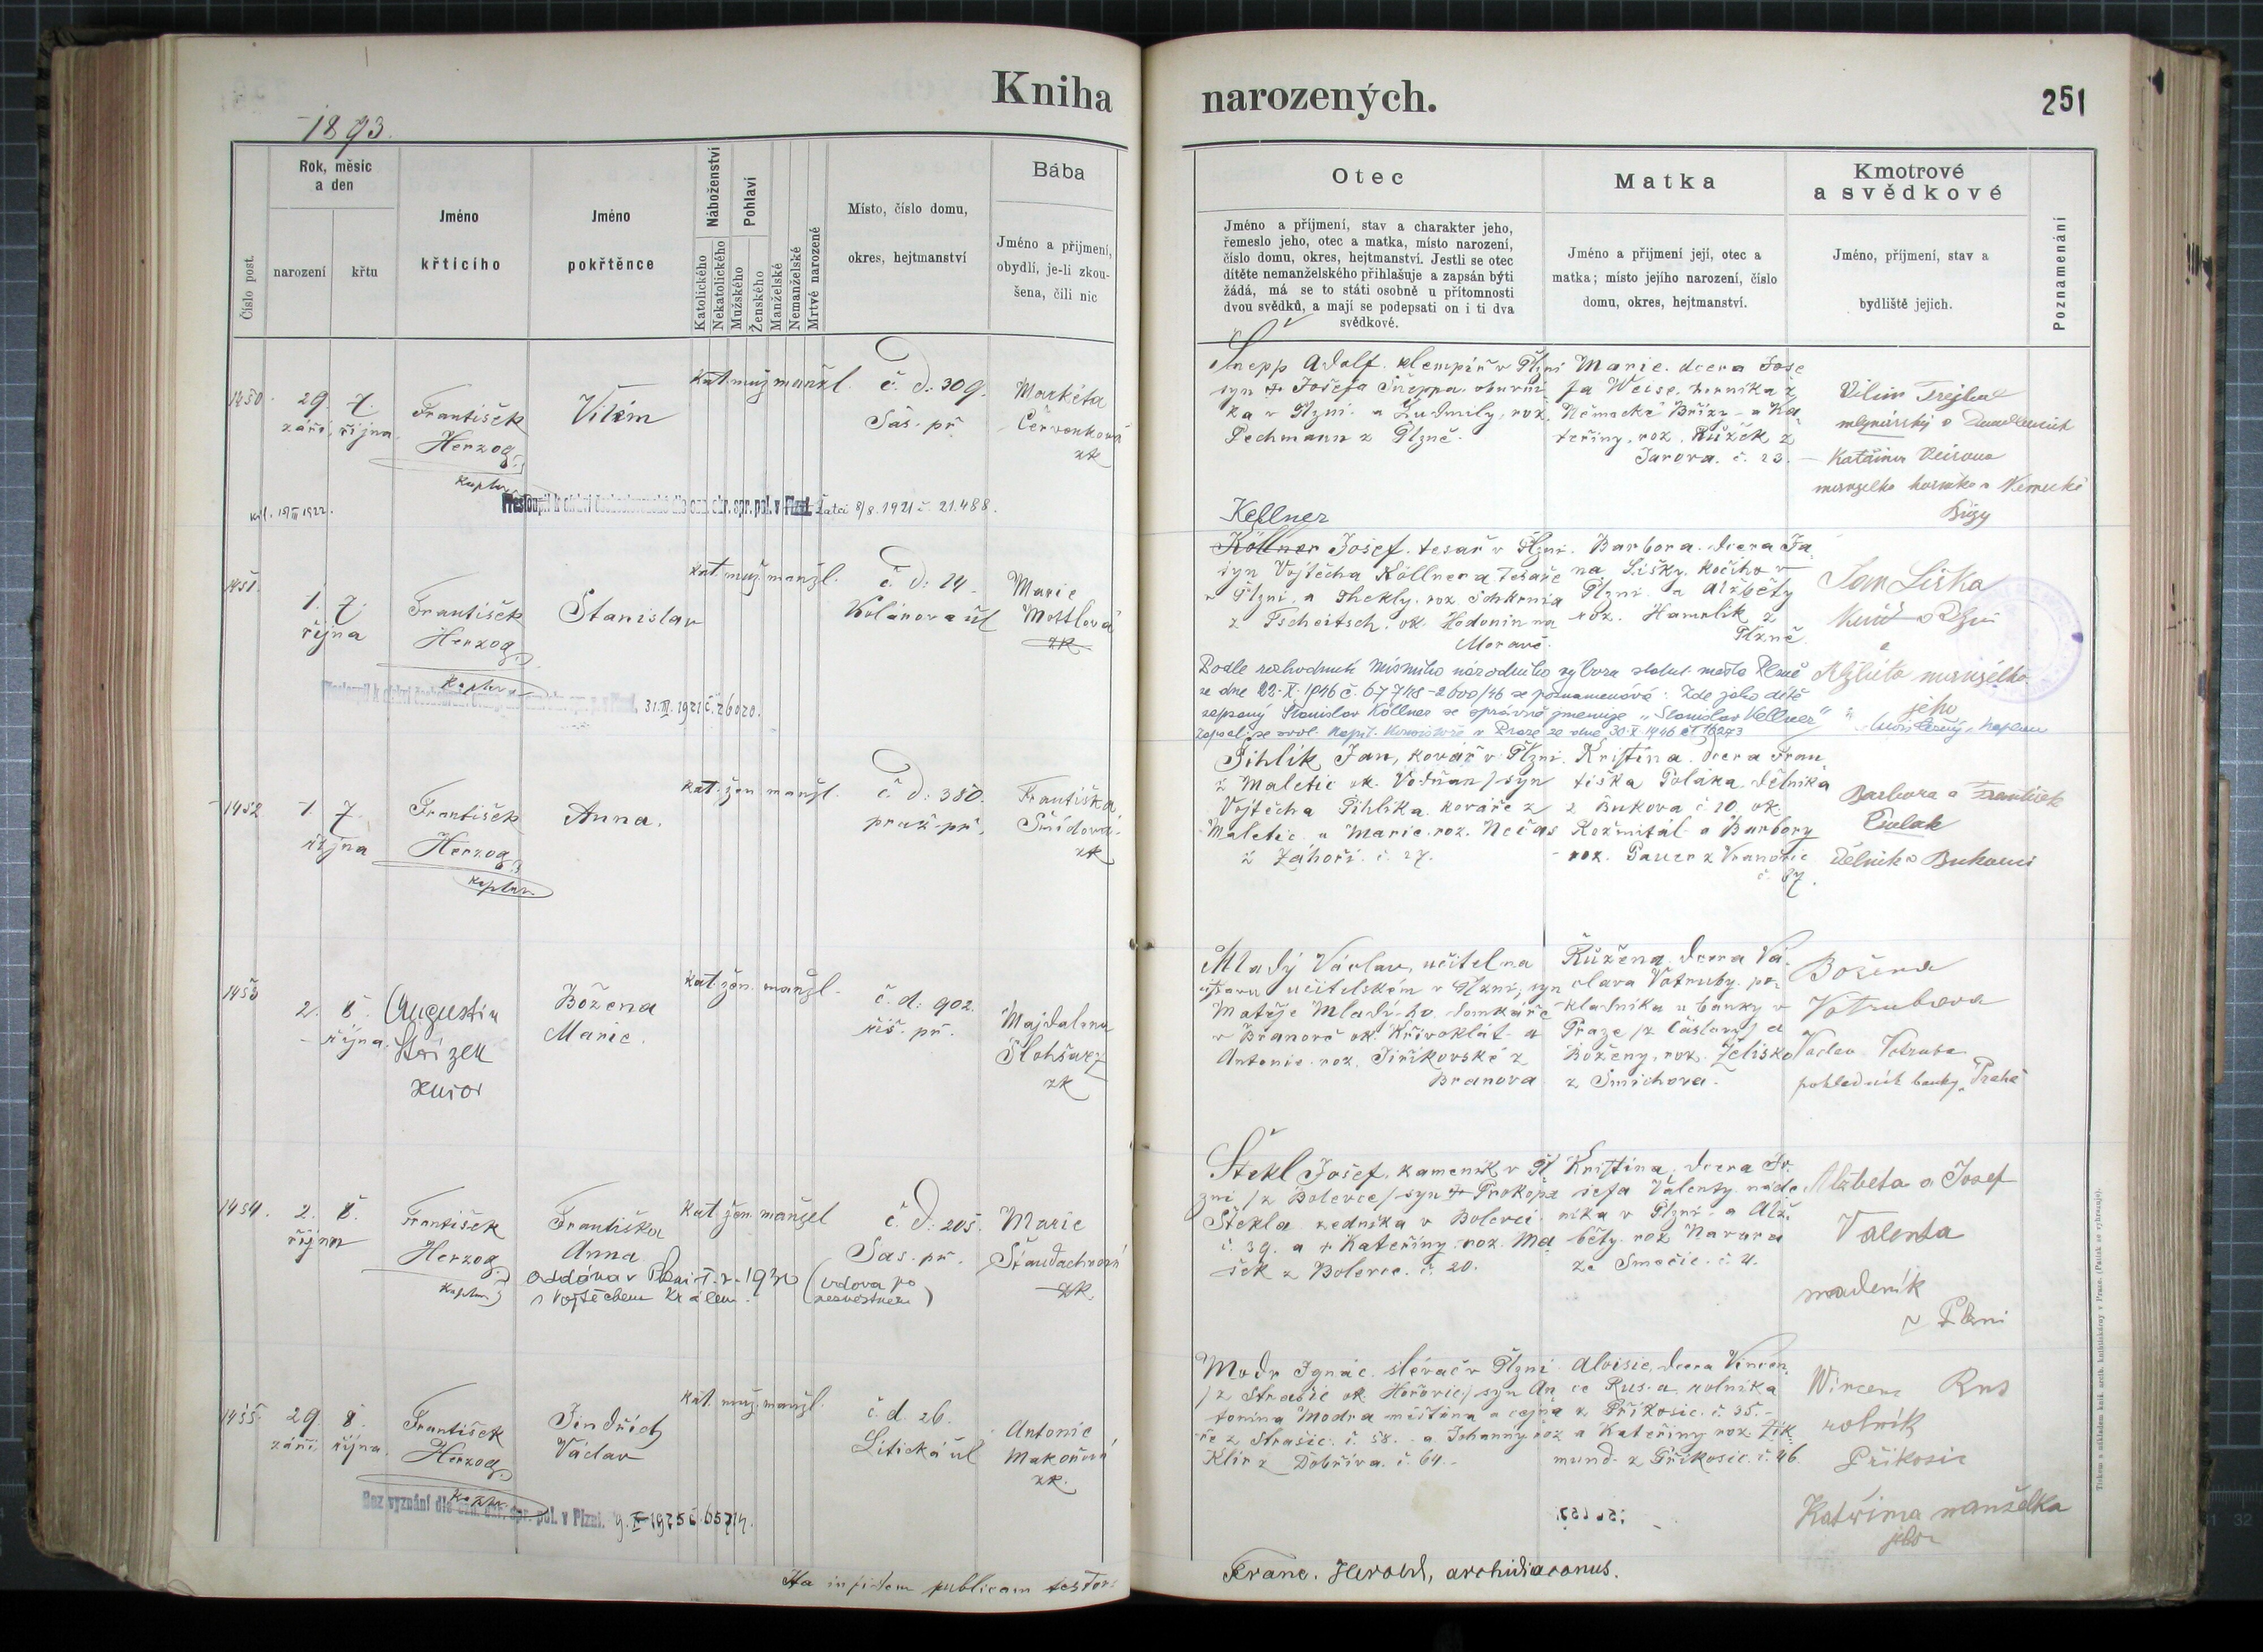 Kniha narozených.
251
1893.
Číslo post.
Rok, měsíc
a den
narození
křtu
Jméno
křtícího
Jméno
pokřtěnce
Náboženství
Katolického
Nekatolického
Pohlaví
Mužského
Ženského
Manželské
Nemanželské
Mrtvé narozené
Místo, číslo domu,
okres, hejtmanství
Bába
Jméno a přijmení,
obydlí, je-li zkou-
šena, čili nic
Otec
Jméno a příjmení, stav a charakter jeho,
řemeslo jeho, otec a matka, místo narození,
číslo domu, okres, hejtmanství. Jestli se otec
dítěte nemanželského přihlašuje a zapsán býti
žádá, má se to státi osobně u přítomnosti
dvou svědků, a mají se podepsati on i ti dva
svědkové.
Matka
Jméno a příjmení její, otec a
matka; místo jejího narození, číslo
domu, okres, hejtmanství.
Kmotrové
a svědkové
Jméno, příjmení, stav a
bydliště jejich.
Poznamenání
1450.
29. 7.
září října
František
Herzog
kaplan
Vilém
kat. muž. manžl.
č. d. 309.
Sas. př.
Markéta
Červenková
zk
Šnepp Adolf, klempíř v Plzni
syn + Josefa Šneppa, obuvní
ka v Plzni a Ludmily, roz.
Pechmann z Plzně.
Marie, dcera Jose
fa Weise, horníka z
Německé Břízy a Ka
teřiny, roz. Růžek z
Jarova. č. 23.
Vilém
Kateřina
manželka horníka v Německé
Břízy
8/8. 1921 č. 21.488.
1451.
1. 7.
října
František
Herzog
kaplan
Stanislav
kat. muž. manžl.
č. d. 14.
Kolárova ul
Marie
Mottlová
zk
Kellner
Köllner Josef, tesař v Plzni,
syn Vojtěcha Köllnera, tesaře
v Plzni, a Thekly, roz.
z Tscheitsch, ok. Hodonín na
Moravě.
Barbora, dcera Ja
na Lišky, kočího v
Plzni a Alžběty
roz. Hamrlík z
Plzně.
Jan Liška
kočí v Plzni
a
Alžběta manželka
jeho
31. III. 1921 č. 26020.
Podle rozhodnutí Místního národního výboru statut. města Plzně
ze dne 22. X. 1946 č. 67748-2600/46 se poznamenává: Zde jako dítě
zapsaný Stanislav Köllner se správně jmenuje "Stanislav Kellner"
1452
1. 7.
října
František
Herzog
kaplan
Anna.
kat. žen. manžl.
č. d. 380.
praž. př.
Františka
Šmídová
zk
Pihlík Jan, kovář v Plzni
z Maletic ok. Vodňan, syn
Vojtěcha Pihlíka, kováře z
Maletic a Marie, roz. Nečas
z Záhoří. č. 27.
Kristina, dcera Fran
tiška Poláka, dělníka
z Bukova č. 10. ok.
Rožmitál a Barbory
roz. Pauer z Vranovic
č. 67.
Barbora a František
Polák
dělník v Bukově
1453
2. 8.
října
Augustin
Střízek
Božena
Marie.
kat. žen. manžl.
č. d. 902.
říš. př.
Majdalena
zk
Mladý Václav, učitel na
ústavu učitelském v Plzni, syn
Matěje Mladého, domkáře
v Branově ok. Křivoklát a
Antonie, roz. Jiříkovské z
Branova
Růžena, dcera Vá
clava Votruby, po
kladníka u banky v
Praze (z Čáslavi) a
Boženy, roz. Želisko
z Smíchova.
Božena
Votrubova
Václav Votruba
pokladník banky, Praha
1454.
2. 8.
října
František
Herzog
kaplan
Františka
Anna
oddána v Plzni
s Vojtěchem Králem
(vdova po
nezvěstném)
kat. žen. manžel
č. d. 205.
Sas. př.
Marie
zk.
Štekl Josef, kameník v Pl
zni (z Bolevce) syn + Prokopa
Štekla, zedníka v Bolevci
č. 39. a + Kateřiny, roz. Ma
šek z Bolevce. č. 20.
Kristina, dcera Jo
sefa Valenty, náde
níka v Plzni a Alž
běty roz. Navara
ze Směčic. č. 4.
Alžběta a Josef
Valenta
nadeník
v Plzni
1455.
29. 8.
září října
František
Herzog
kaplan
Jindřich
Václav
kat. muž. manžl.
č. d. 26.
Litická ul
Antonie
Makoňová
zk.
Modr Ignác, slévač v Plzni
(z Strašic ok. Hořovic) syn An
tonína Modra
ře z Strašic č. 58. a Johanny, roz
Klír z Dobříva. č. 64.
Aloisie, dcera Vincen
ce Rusa, rolníka
z Příkosic. č. 35.
a Kateřiny roz. Zik
mund z Příkosic. č. 46.
Wincenc Rus
rolník
Příkosic
Kateřina manželka
jeho
Bez vyznání dle ozn. okr. spr. pol. v Plzni.
Ita in fidem publicam testor
Franc. Herold, archidiaconus.